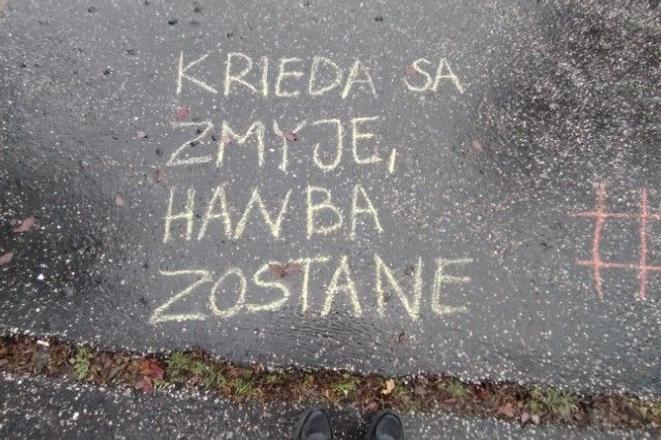 KRIEDA SA
ZMYJE,
HANBA
ZOSTANE
#